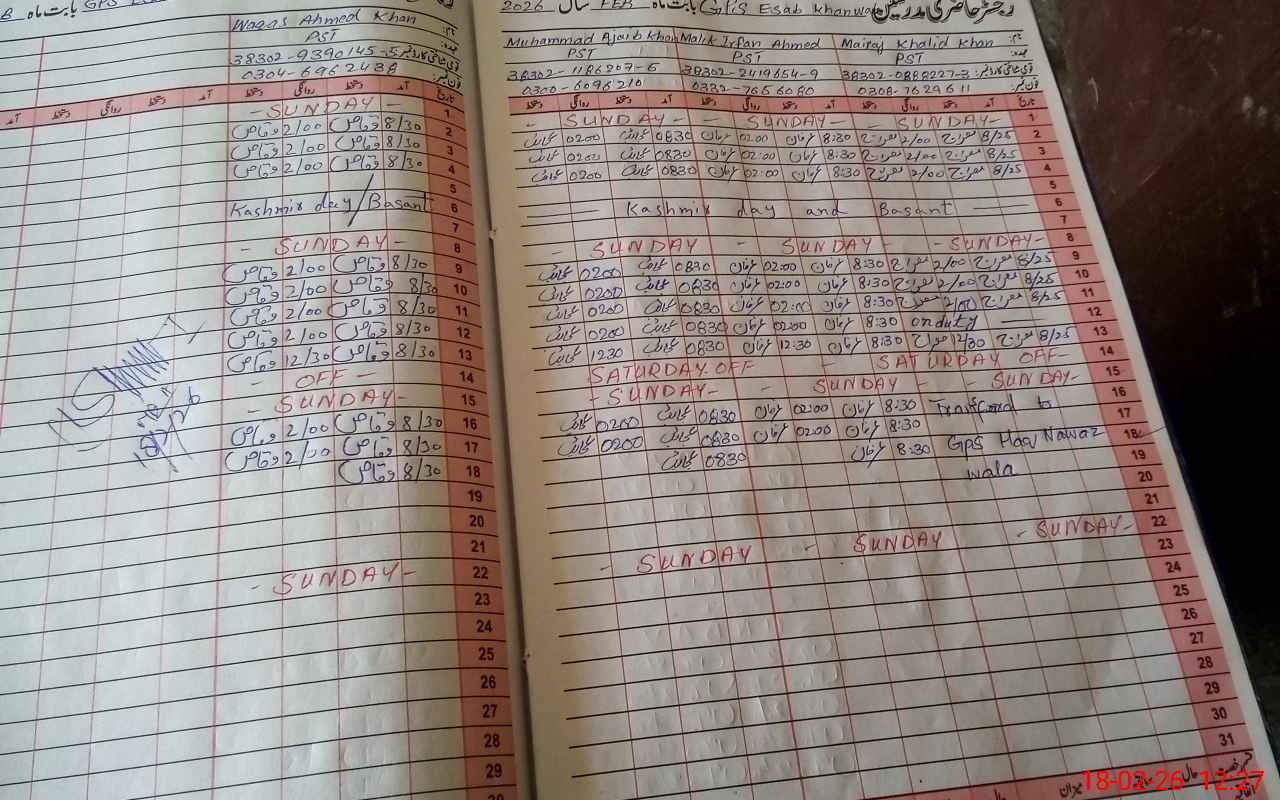 رجسٹر حاضری مدرسین GPS Esab Khanwa بابت ماہ FEB سال 2026
نام: Muhammad Ajaib Khan Malik Irfan Ahmed Mairaj Khalid Khan
عہدہ: PST PST PST
قومی شناختی کارڈ نمبر: 38302-1186207-5 38302-2419654-9 38302-0888227-3
فون نمبر: 0300-6096210 0332-7656080 0308-7629611
تاریخ آمد دستخط روانگی دستخط آمد دستخط روانگی دستخط آمد دستخط روانگی دستخط
1 - SUNDAY - SUNDAY - SUNDAY -
2 8/25 معراج 2/00 معراج 8:30 عرفان 02:00 عرفان 0830 عجائب 0200 عجائب
3 8/25 معراج 2/00 معراج 8:30 عرفان 02:00 عرفان 0830 عجائب 0200 عجائب
4 8/25 معراج 2/00 معراج 8:30 عرفان 02:00 عرفان 0830 عجائب 0200 عجائب
5
6 Kashmir day and Basant
7
8 - SUNDAY - SUNDAY - - SUNDAY -
9 8/25 معراج 2/00 معراج 8:30 عرفان 02:00 عرفان 0830 عجائب 0200 عجائب
10 8/25 معراج 2/00 معراج 8:30 عرفان 02:00 عرفان 0830 عجائب 0200 عجائب
11 8/25 معراج 2/00 معراج 8:30 عرفان 02:00 عرفان 0830 عجائب 0200 عجائب
12 onduty 8:30 عرفان 02:00 عرفان 0830 عجائب 0200 عجائب
13 8/25 معراج 12/30 معراج 8:30 عرفان 12:30 عرفان 0830 عجائب 1230 عجائب
14 SATURDAY OFF - SATURDAY OFF-
15 - SUNDAY - - SUNDAY - SUNDAY -
16 Transfered to 8:30 عرفان 02:00 عرفان 0830 عجائب 0200 عجائب
17 GPS Haq Nawaz 8:30 عرفان 02:00 عرفان 0830 عجائب 0200 عجائب
18 wala 8:30 عرفان 0830 عجائب
19
20
21
22 - SUNDAY - SUNDAY - SUNDAY -
23
24
25
26
27
28
29
30
31
بابت ماہ GPS
Waqas Ahmed Khan
PST
قومی شناختی کارڈ نمبر 38302-9390145-5
فون نمبر: 0304-6962438
تاریخ آمد دستخط روانگی دستخط آمد دستخط روانگی دستخط آمد
1 - SUNDAY -
2 8/30 وقاص 2/00 وقاص
3 8/30 وقاص 2/00 وقاص
4 8/30 وقاص 2/00 وقاص
5
6 Kashmir day/Basant
7
8 - SUNDAY -
9 8/30 وقاص 2/00 وقاص
10 8/30 وقاص 2/00 وقاص
11 8/30 وقاص 2/00 وقاص
12 8/30 وقاص 2/00 وقاص
13 8/30 وقاص 12/30 وقاص
14 - OFF -
15 - SUNDAY -
16 8/30 وقاص 2/00 وقاص
17 8/30 وقاص 2/00 وقاص
18 8/30 وقاص
19
20
21
22 - SUNDAY -
23
24
25
26
27
28
29
18-02-26 12:27